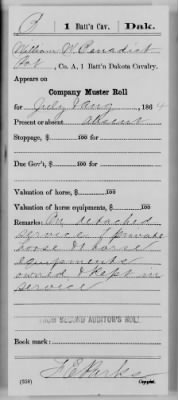 P | 1 Batt'n Cav. | Dak.
William W. Benedict
Pvt, Co. A, 1 Batt'n Dakota Cavalry.
Appears on
Company Muster Roll
for July & Aug, 1864
Present or absent Absent
Stoppage, $ 100 for
Due Gov't, $ 100 for
Valuation of horse, $ 100
Valuation of horse equipments, $ 100
Remarks: On detached
service. 1 private
horse & 1 horse
equipments
owned & kept in
service
FROM SECOND AUDITOR'S ROLL
Book mark:
(358)
Copyist.